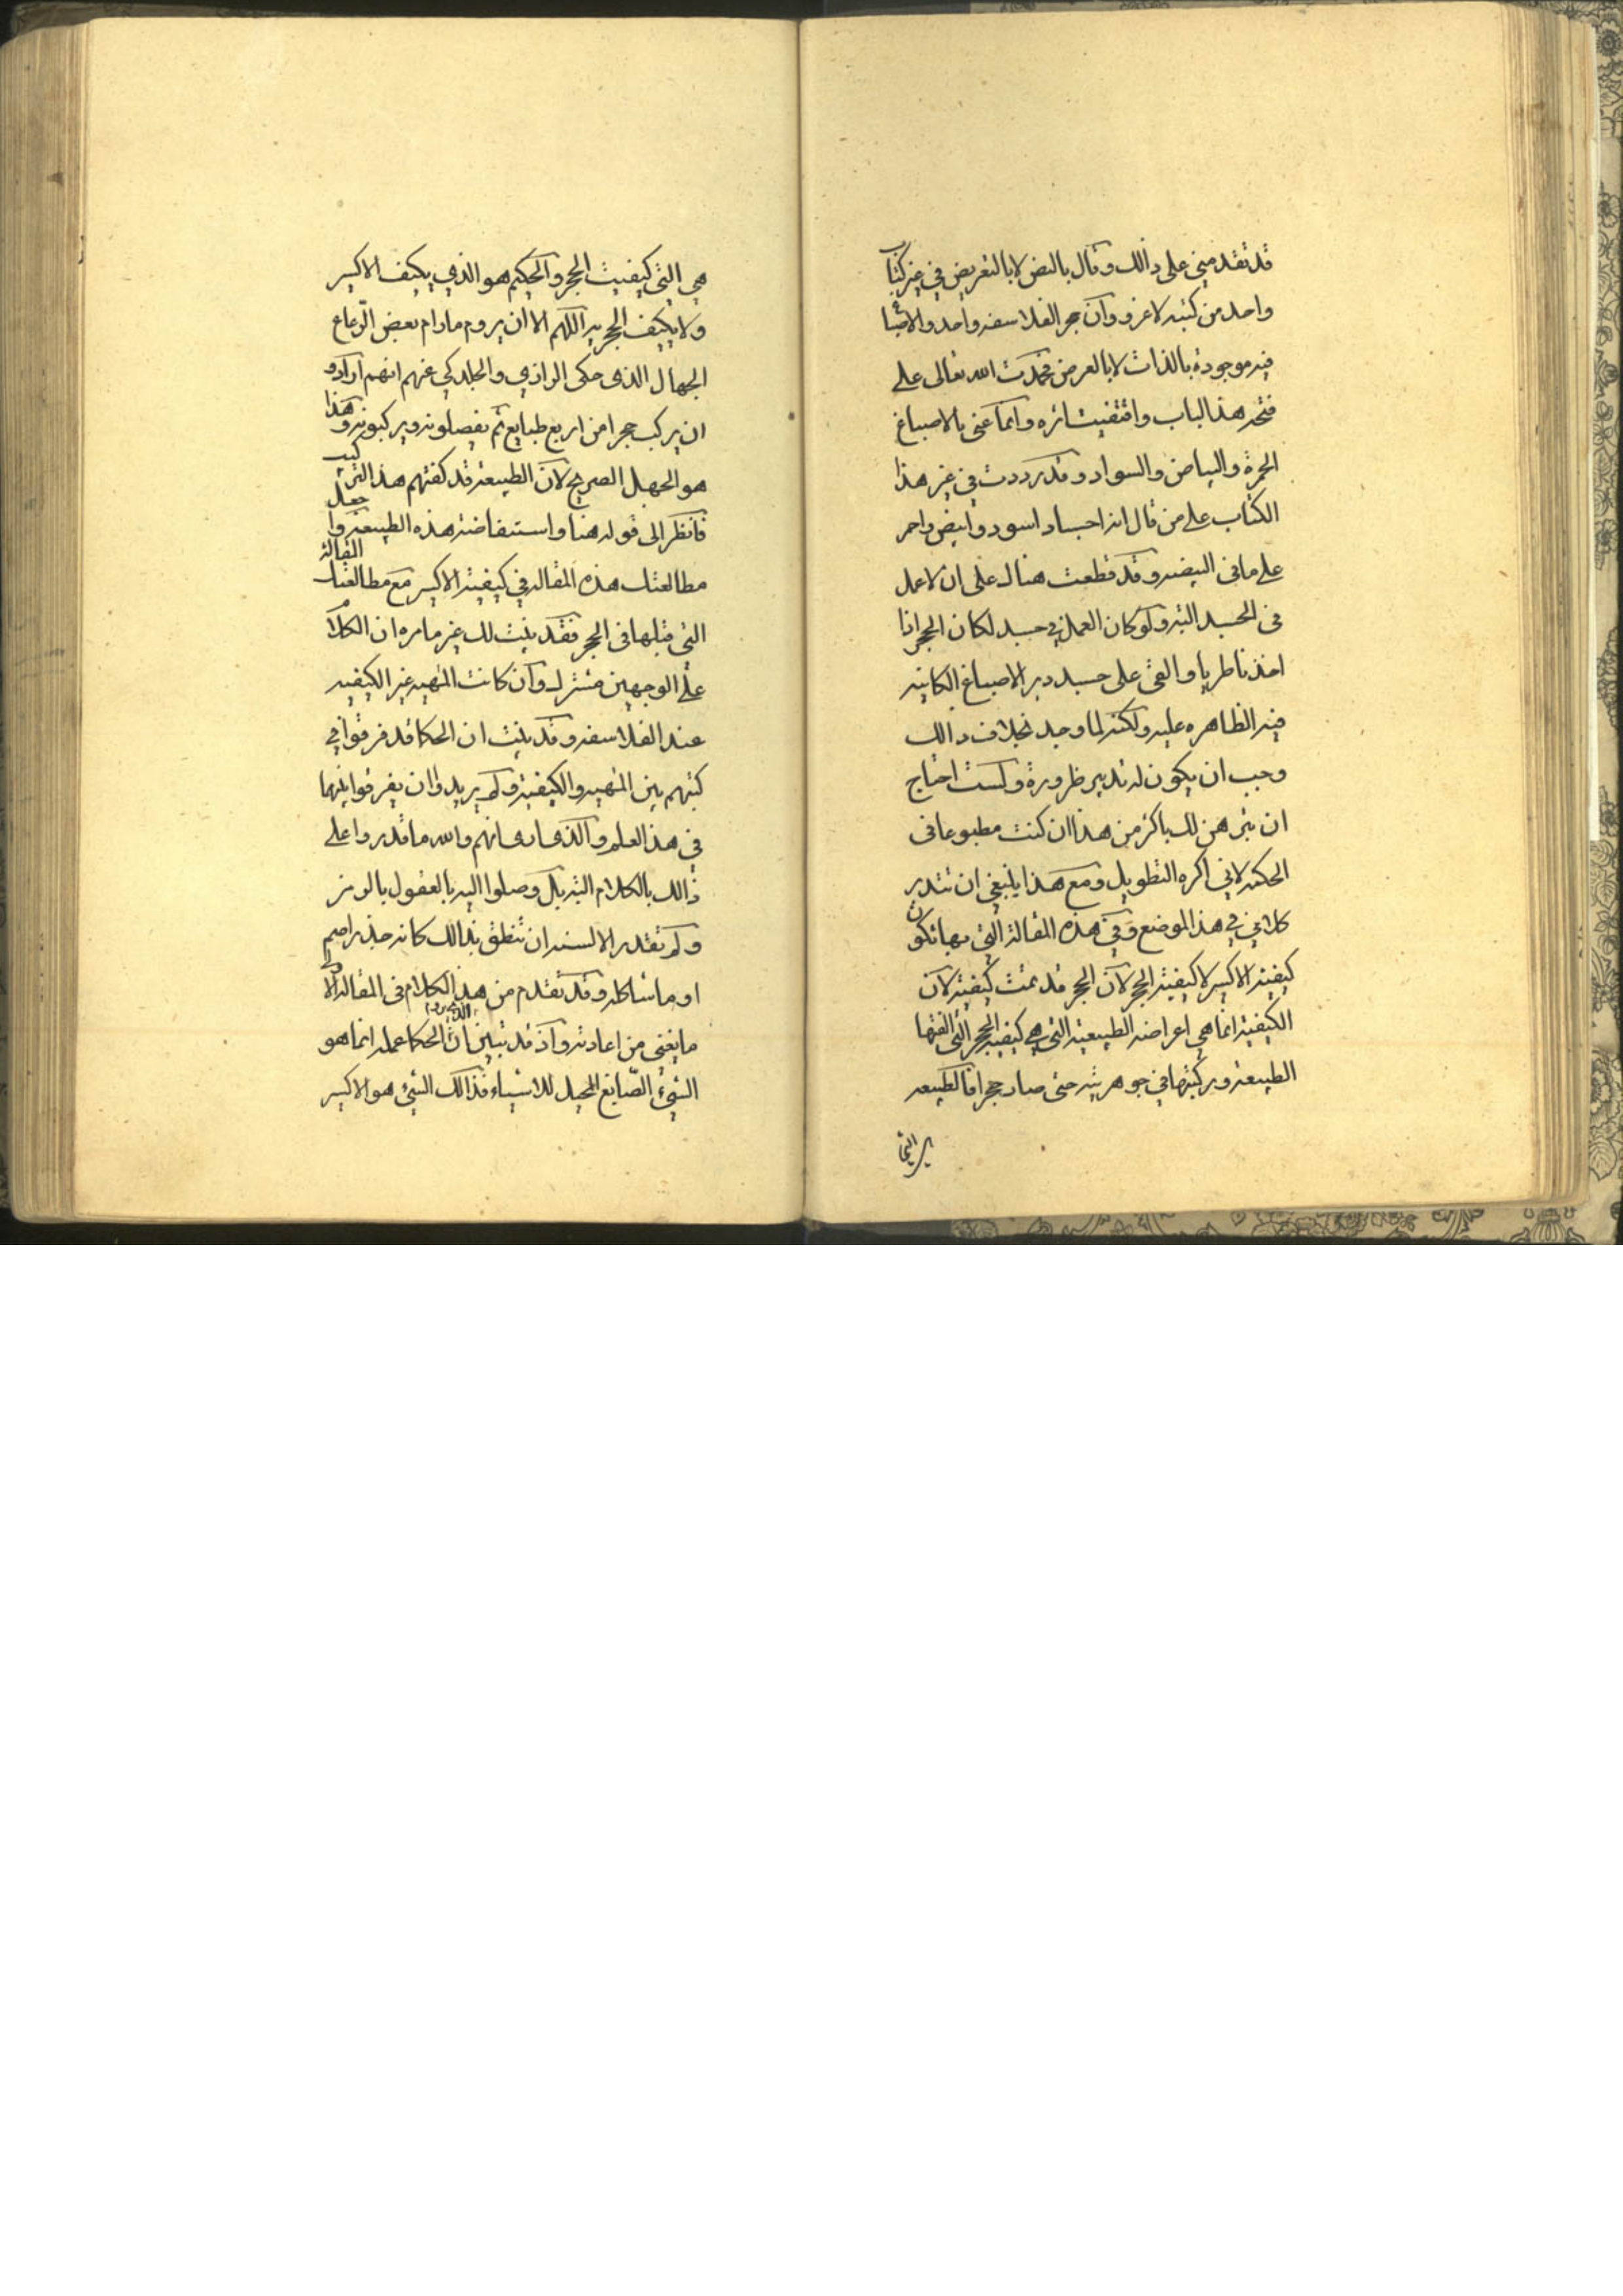 قد تقدمنى على ذالك وقال بالنص لا بالتعريض في غير كتاب
واحد من كتبه لاغرو وان حجر الفلاسفه واحد والاصبا
فيه موجودة بالذات لا بالعرض فحمدت الله تعالى على
فتحه هذا الباب واقتفيت اثره وانما عنى بالاصباغ
الحمرة والبياض والسواد وقد رددت في غير هذا
الكتاب على من قال انه اجساد اسود وابيض واحمر
على ما فى البيضه وقد قطعت هناك على ان لا عمل
فى الجسد البته ولو كان العمل في جسد لكان الحجر اذا
اخذ ناطريا والقى على جسد دبر الاصباغ الكاينه
فيه الظاهره عليه ولكنه لما وجد بخلاف دالك
وجب ان يكون له تدبير ضرورة ولست احتاج
ان نبرهن لك باكثر من هذا ان كنت مطبوعا فى
الحكمه لاني اكره التطويل ومع هذا ينبغي ان تتدبر
كلامي في هذا الموضع وفي هذه المقالة التي بها تكون
كيفية الاكسير لا كيفية الحجر لان الحجر قد تمت كيفيته لان
الكيفية انما هي اعراضه الطبيعية التي هي كيفية الحجر التى الفتها
الطبيعة وركبتها في جوهريته حتى صار حجرا فالطبيعه
هي التي كيفيت الحجر والحكيم هو الذي يكيف الاكسير
ولا يكيف الحجريه اللهم الا ان يروم مارام بعض الرعاع
الجهال الذى حكى الرازي والجلدكي عنهم انهم ارادو
ان يركب حجرا من اربع طبايع ثم يفصلونه ويركبونه وهذا
هو الجهل الصريح لان الطبيعة قد كفتهم هذا التركيب
فانظر الى قوله هنا واستفاضته هذه الطبيعة واجعل
مطالعتك هذه المقاله في كيفية الاكسير مع مطالعتك المقالة
التى قبلها فى الحجر فقد بينت لك غير مامره ان الكلام
على الوجهين مشترك وان كانت المهيه غير الكيفيه
عند الفلاسفه وقد بينت ان الحكما قد فرقوا في
كتبهم بين المهيه والكيفية ولم يريدوا ان يفرقوا بينهما
في هذ العلم والذى ارى انهم والله ما قدروا على
ذالك بالكلام البته بل وصلوا اليه بالعقول بالرمز
ولم تقدر الالسنه ان تنطق بذالك كانه جذر اصم
او ما شاكله وقد تقدم من هذ الكلام فى المقاله الاولى
ما يغنى من اعادته واذ قد تبين ان الحكما عمله انما هو
الشئ الصابغ المحيل للاشياء فذالك الشئ هو الاكسير